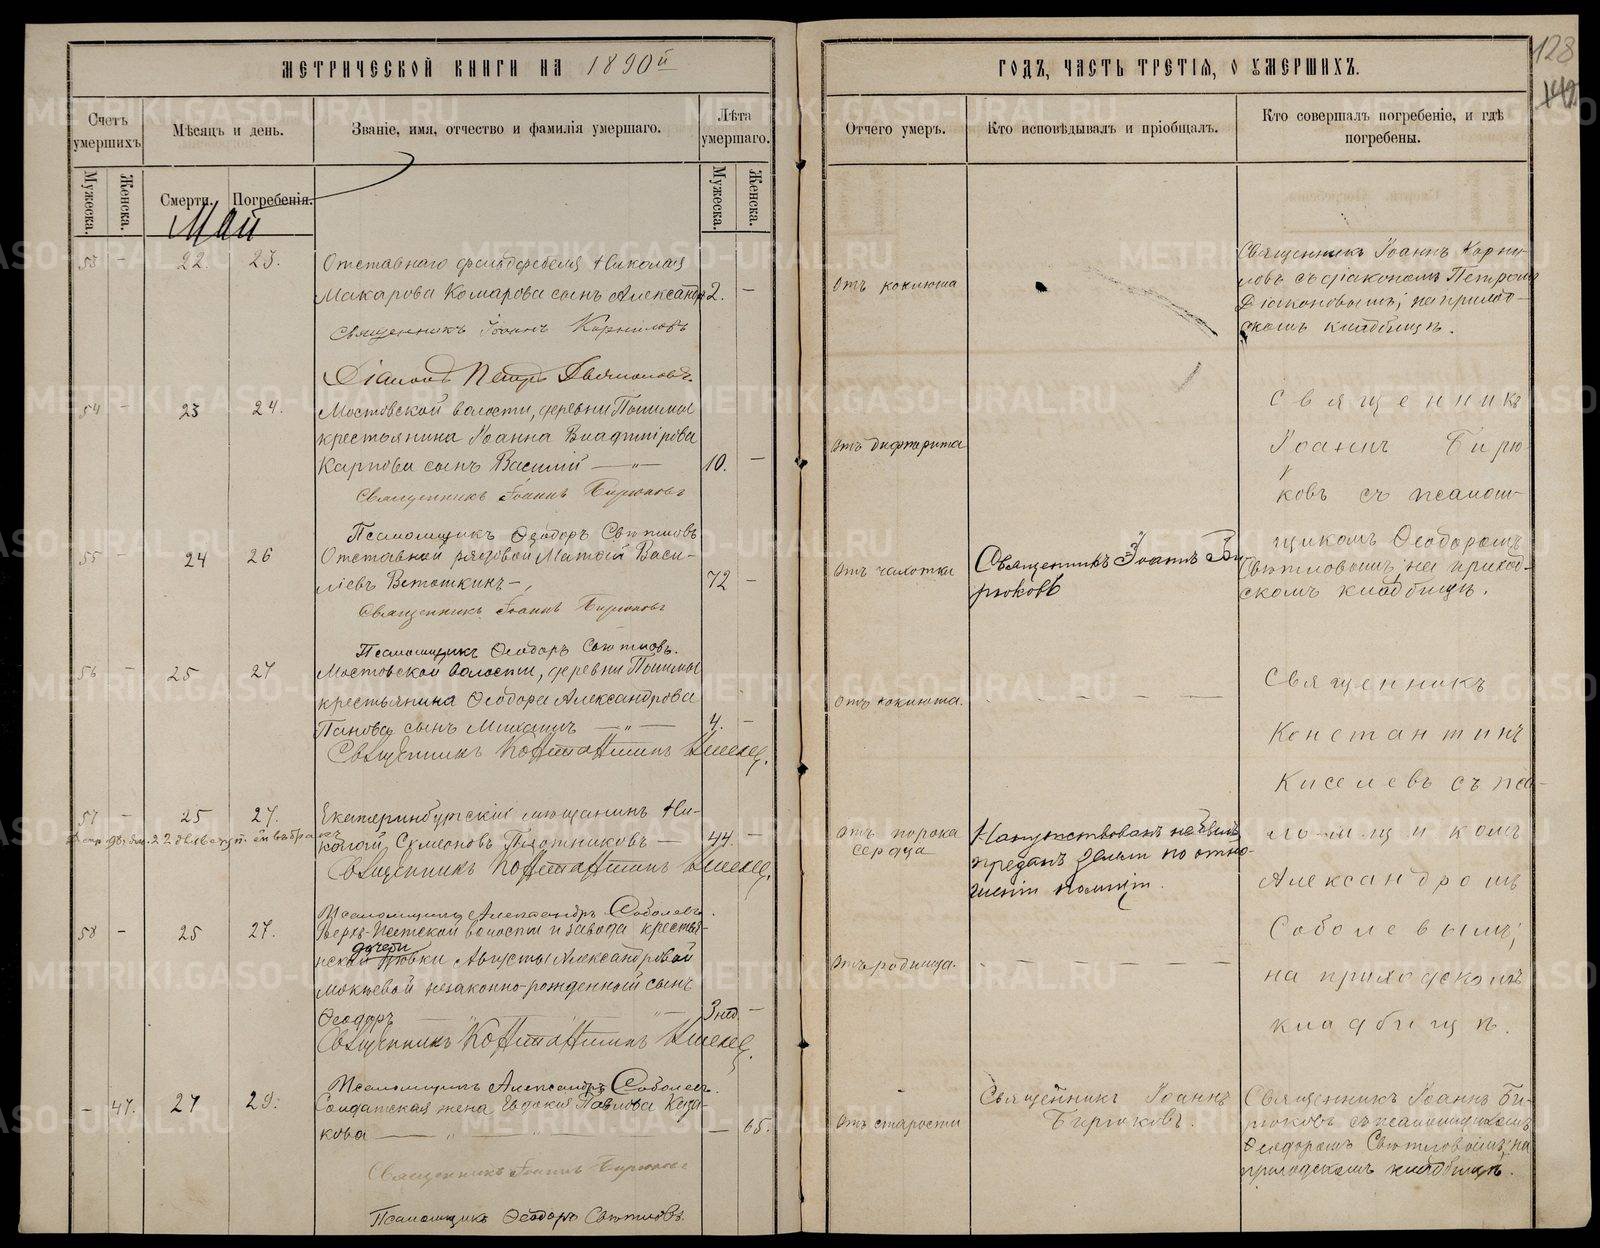 МЕТРИЧЕСКОЙ КНИГИ НА 1890й
Счетъ умершихъ
Мѣсяцъ и день.
Званіе, имя, отчество и фамилія умершаго.
Лѣта умершаго.
Мужеска.
Женска.
Смерти.
Погребенія.
Мужеска.
Женска.
Май
53 - 22. 23.
Отставнаго фельдфебеля Николая
Макарова Комарова сынъ Александръ 2. -
Священникъ Іоаннъ Корниловъ
Діаконъ Петръ Діаконовъ.
54 - 23 24.
Мостовской волости, деревни
крестьянина Іоанна Владимірова
Карпова сынъ Василій — „ — 10. -
Священникъ Іоаннъ Бирюковъ
Псаломщикъ Ѳеодоръ Свѣтловъ
55 - 24 26
Отставной рядовой Матѳій Васи-
ліевъ Ветошкинъ - 72 -
Священникъ Іоаннъ Бирюковъ
Псаломщикъ Ѳеодоръ Свѣтловъ.
56 - 25 27
Мостовской волости, деревни
крестьянина Ѳеодора Александрова
Панова сынъ Михаилъ — „ — 4. -
Священникъ Константинъ Киселевъ.
57 - 25 27.
Екатеринбургскій мѣщанинъ Ни-
колай Симеоновъ Плотниковъ — 44. -
Священникъ Константинъ Киселевъ.
Псаломщикъ Александръ Соболевъ.
58 - 25 27.
Верхъ-Исетской волости и завода крестья-
нской дочери
дѣвки Августы Александровой
Мокѣевой незаконно-рожденный сынъ
Ѳеодоръ — 3 нед. -
Священникъ Константинъ Киселевъ.
Псаломщикъ Александръ Соболевъ.
- 47. 27 29.
Солдатская жена Евдокія Павлова Каза-
кова — „ — - 65.
Священникъ Іоаннъ Бирюковъ
Псаломщикъ Ѳеодоръ Свѣтловъ.
ГОДЪ, ЧАСТЬ ТРЕТІЯ, О УМЕРШИХЪ.
128
Отчего умеръ.
Кто исповѣдывалъ и пріобщалъ.
Кто совершалъ погребеніе, и гдѣ погребены.
Отъ коклюша
Священникъ Іоаннъ Корни-
ловъ съ діакономъ Петромъ
Діаконовымъ, на приход-
скомъ кладбищѣ.
Отъ дифтерита
Священникъ
Іоаннъ Бирю-
ковъ съ псалом-
щикомъ Ѳеодоромъ
Свѣтловымъ, на приход-
скомъ кладбищѣ.
Отъ чахотки
Священникъ Іоаннъ Би-
рюковъ
Отъ коклюша.
Священникъ
Константинъ
Киселевъ съ пса-
ломщикомъ
Александромъ
Соболевымъ,
на приходскомъ
кладбищѣ.
Отъ порока
сердца
Напутствованъ не былъ,
преданъ землѣ по отно-
шенію полиціи.
Отъ родимца.
Отъ старости
Священникъ Іоаннъ
Бирюковъ.
Священникъ Іоаннъ Би-
рюковъ съ псаломщикомъ
Ѳеодоромъ Свѣтловымъ, на
приходскомъ кладбищѣ.
METRIKI.GASO-URAL.RU